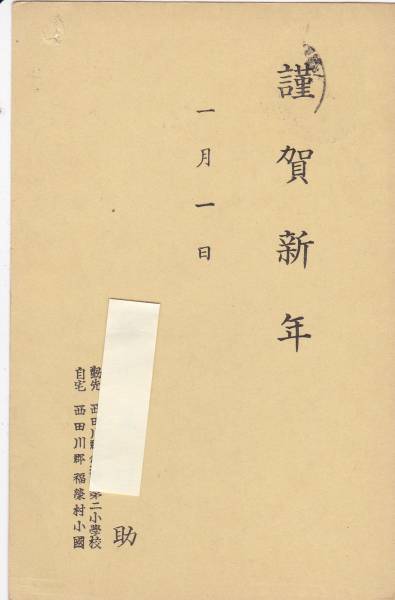 謹賀新年
一月一日
助
勤先 西田川郡 第二小學校
自宅 西田川郡福榮村小國